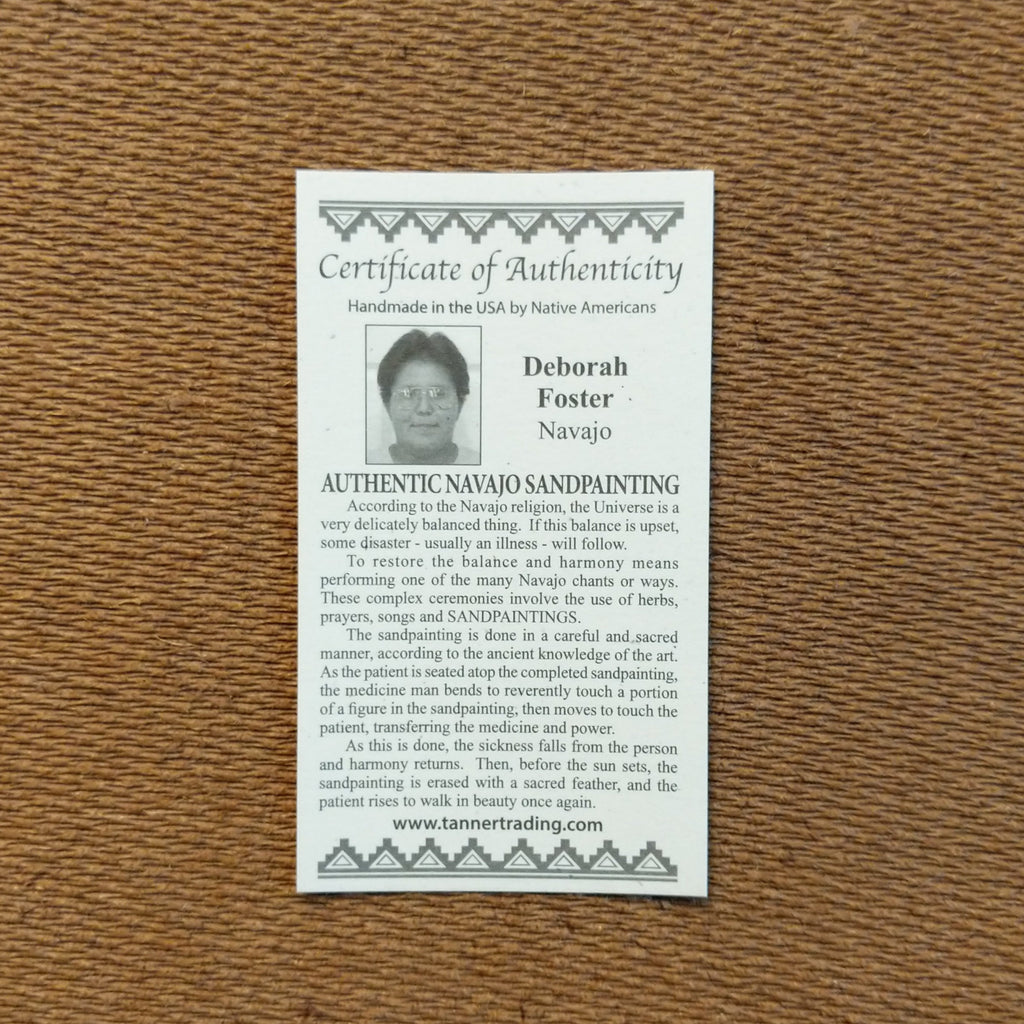 Certificate of Authenticity
Handmade in the USA by Native Americans
Deborah
Foster
Navajo
AUTHENTIC NAVAJO SANDPAINTING
According to the Navajo religion, the Universe is a
very delicately balanced thing. If this balance is upset,
some disaster - usually an illness - will follow.
To restore the balance and harmony means
performing one of the many Navajo chants or ways.
These complex ceremonies involve the use of herbs,
prayers, songs and SANDPAINTINGS.
The sandpainting is done in a careful and sacred
manner, according to the ancient knowledge of the art.
As the patient is seated atop the completed sandpainting,
the medicine man bends to reverently touch a portion
of a figure in the sandpainting, then moves to touch the
patient, transferring the medicine and power.
As this is done, the sickness falls from the person
and harmony returns. Then, before the sun sets, the
sandpainting is erased with a sacred feather, and the
patient rises to walk in beauty once again.
www.tannertrading.com